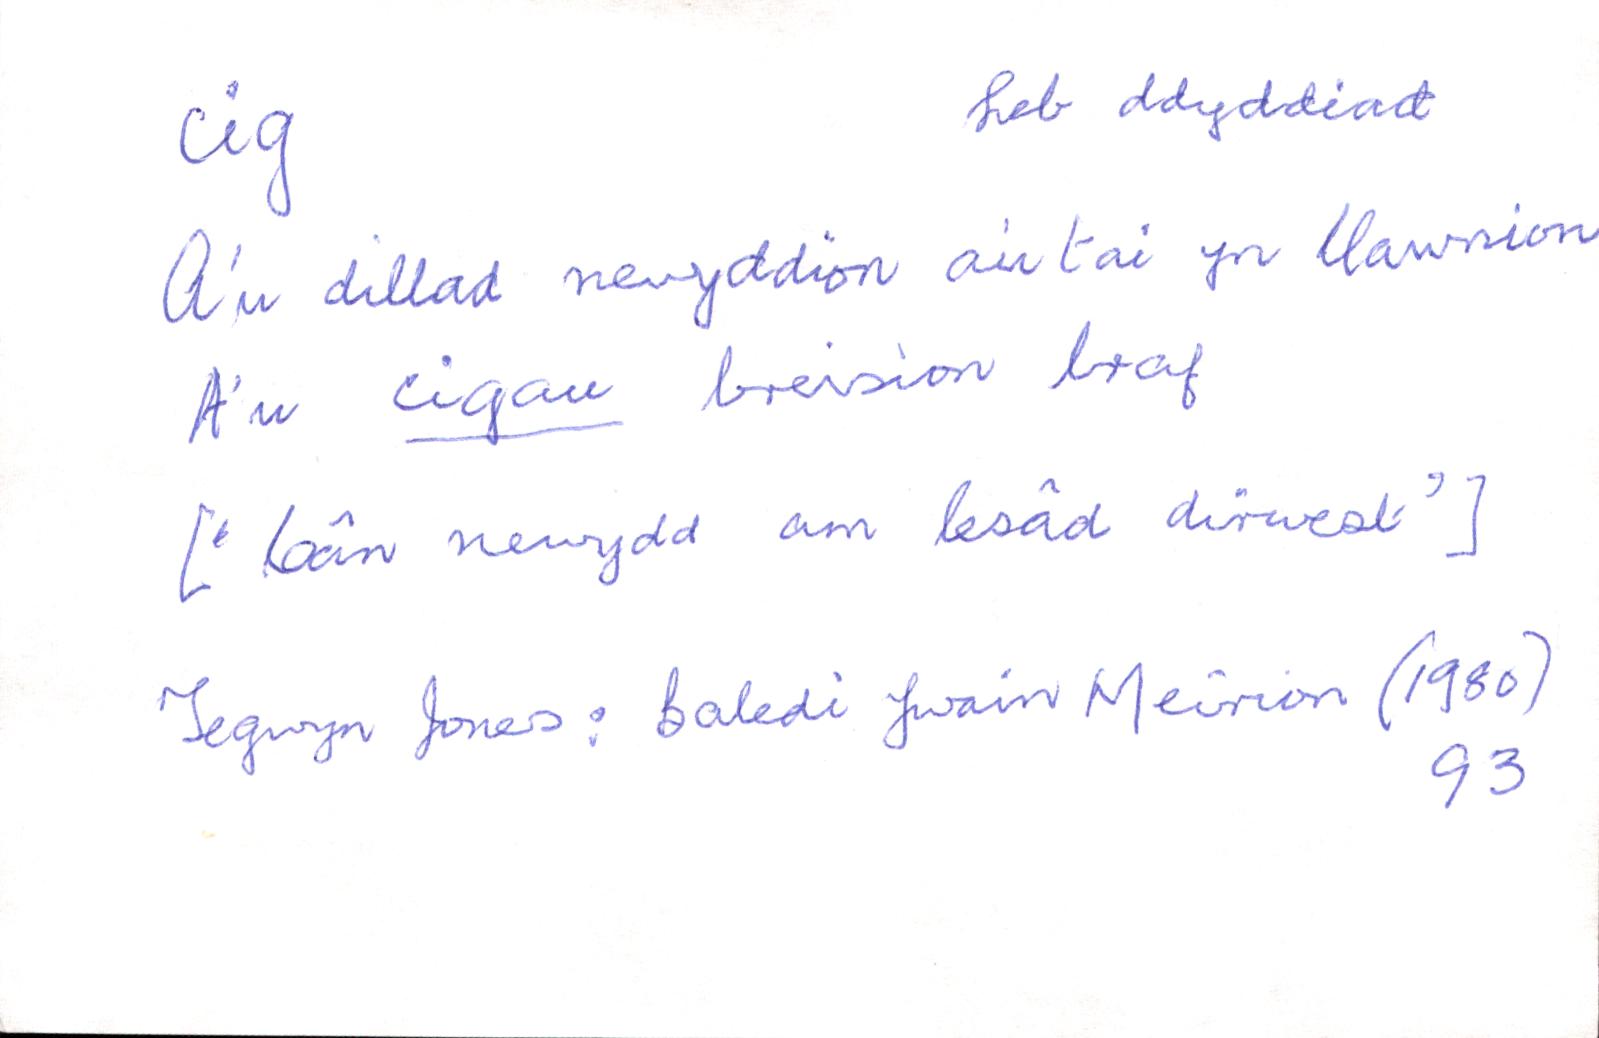 cig heb ddyddiad
A'u dillad newyddion a'u tai yn llawnion
A'u cigau breision braf
[‘Cân newydd am lesâd dirwest’]
Tegwyn Jones: Baledi Ywain Meirion (1980)
93